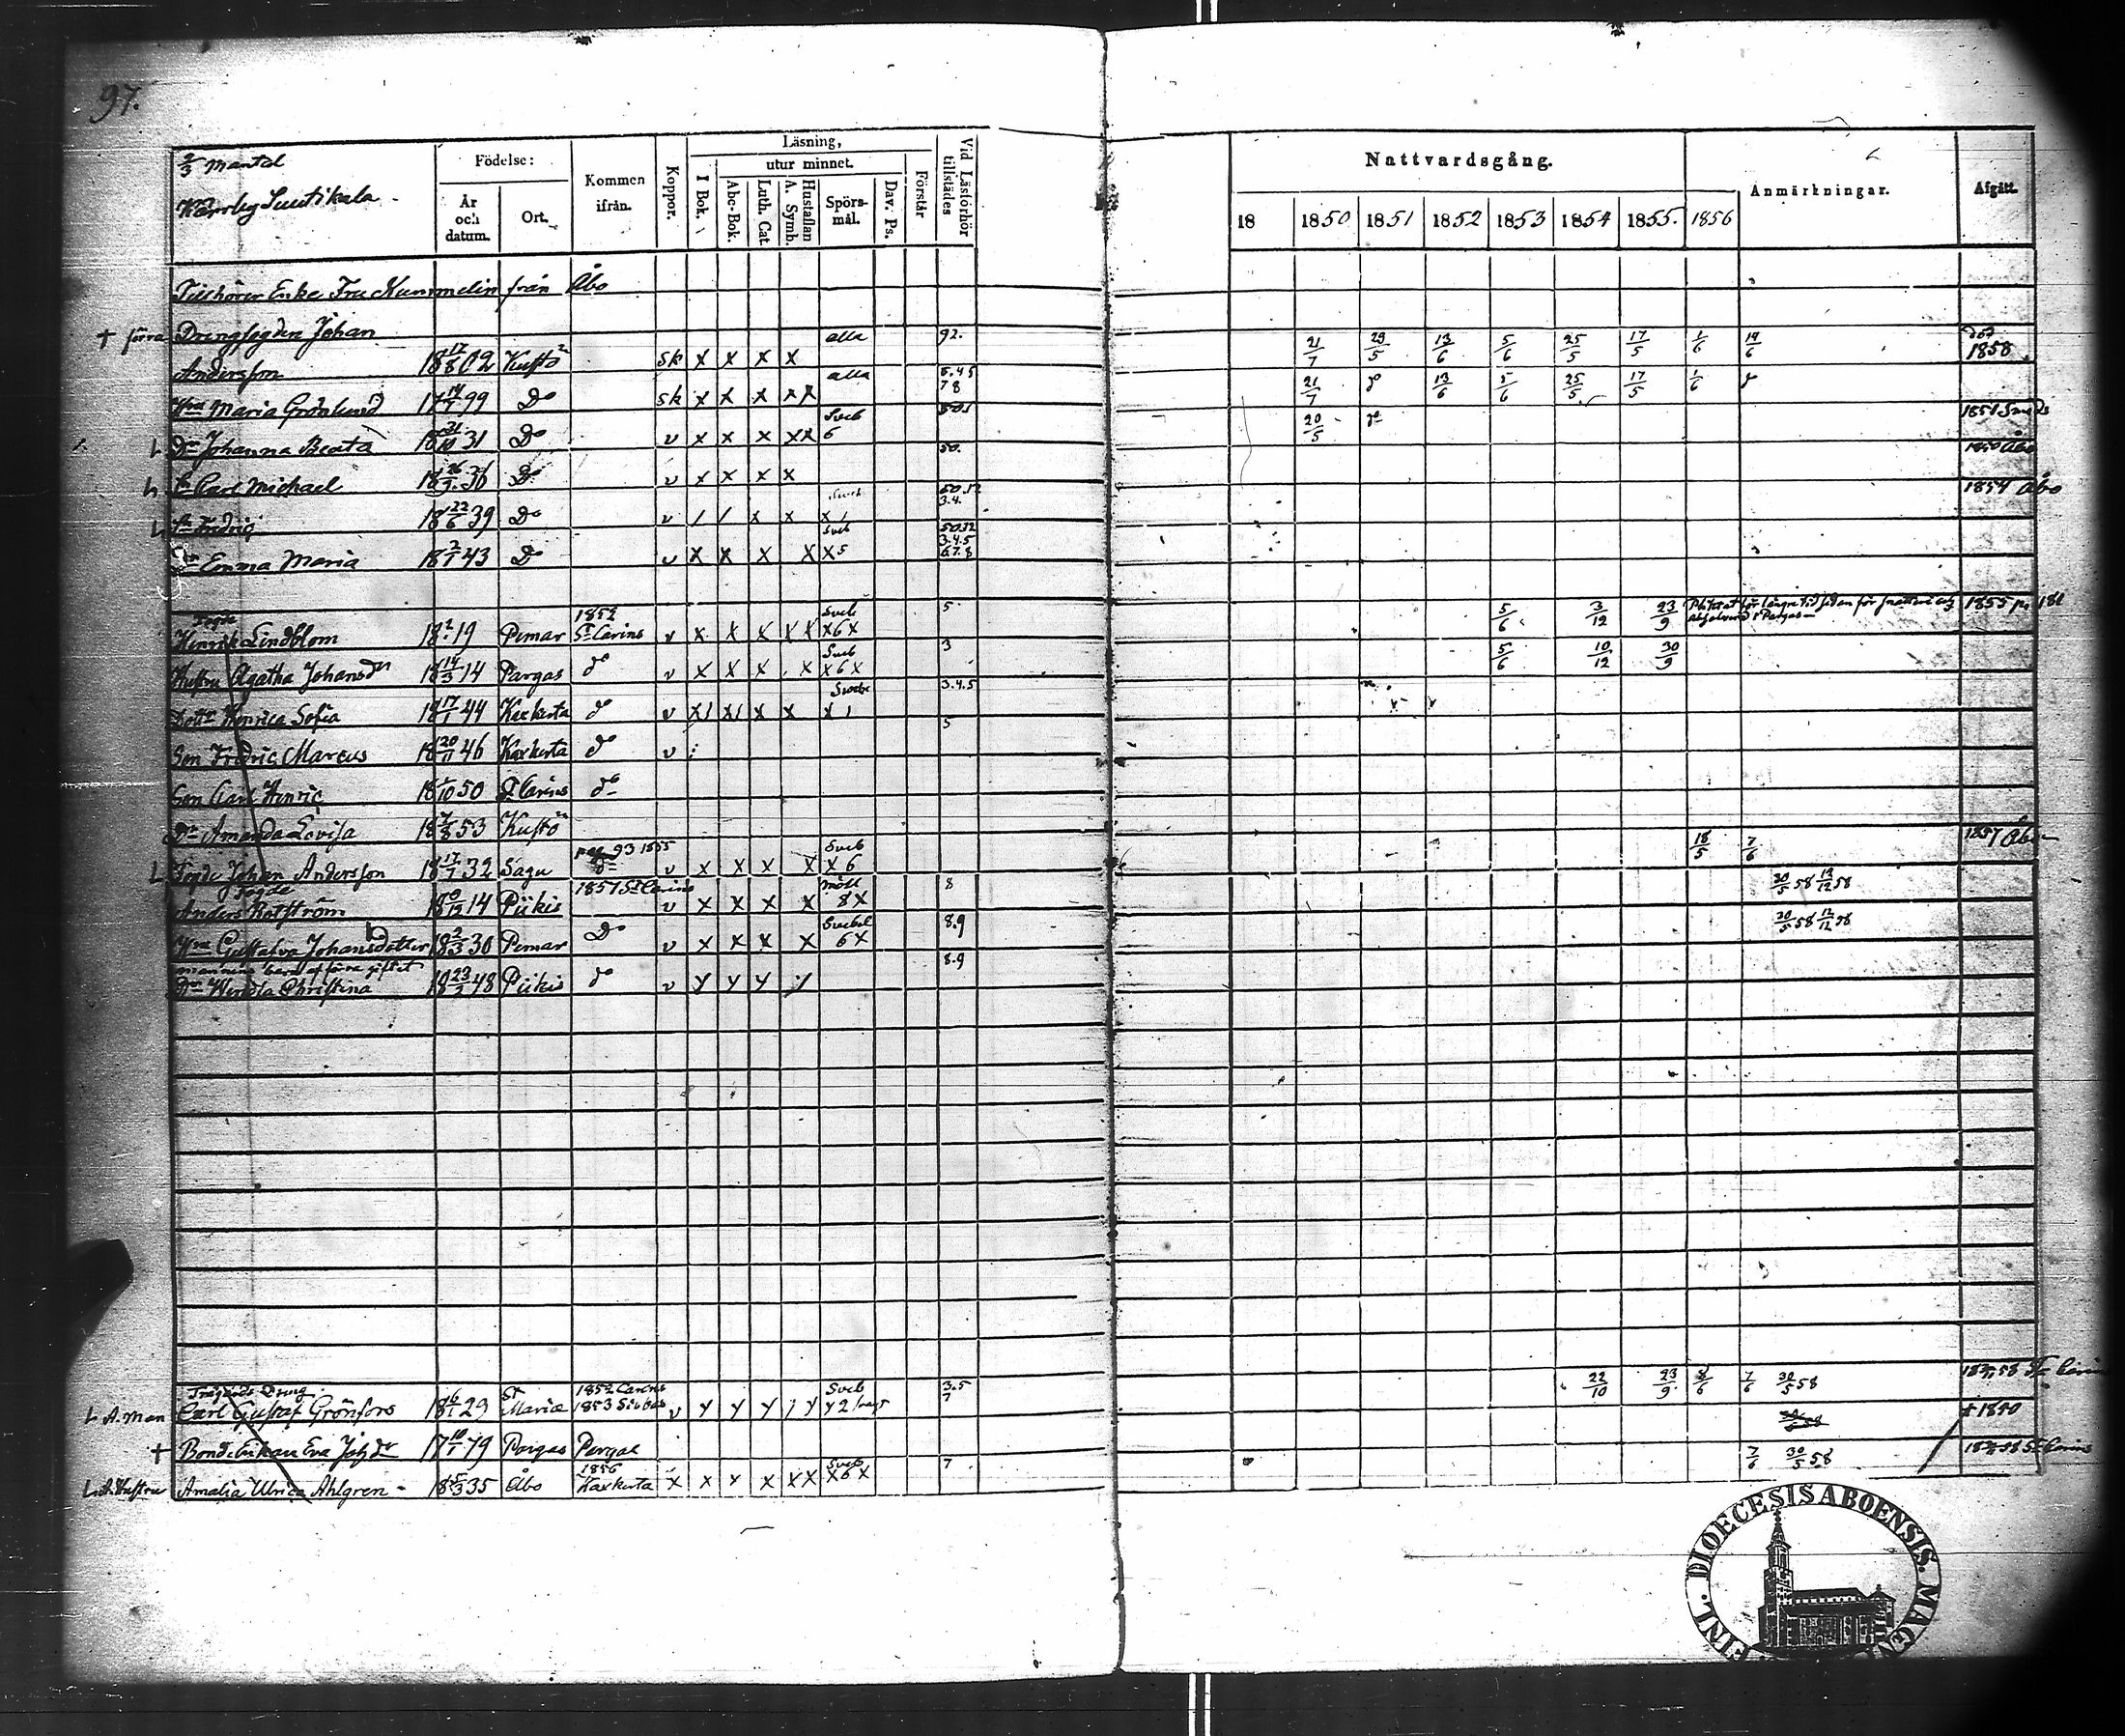 97.
2/3 Mantal
Kårrby Suutikala
Födelse:
År och datum.
Ort.
Kommen ifrån.
Koppor.
Läsning,
I Bok.
utur minnet.
Abc-Bok.
Luth. Cat.
A. Symb.
Hustaflan
Spörsmål.
Dav. Ps.
Förstår
Vid Läsförhör tillstädes
Nattvardsgång.
18 1850 1851 1852 1853 1854 1855. 1856
Anmärkningar.
Afgått.
Tillhörer Enke Fru Kummelin från Åbo
† förra Drengfogden Johan alla 92. 21/7 29/5 13/6 5/6 25/5 17/5 1/6 14/6 död 1858
Andersson 18 17/8 02 Kustö sk x x x x
Hru Maria Grönlund 17 14/7 99 Do sk x x x x x alla 6.45 78 21/7 13/6 5/6 25/5 17/5 1/6
L Dr Johanna Beata 18 31/10 31 Do v x x x x x Sveb 6 20/5 1851
L Sn Carl Michael 18 26/9 36 Do v x x x x 50. 1850 Åbo
L Sn Fredric 18 22/6 39 Do v / / x x x / 50.12 3.4. 1854 Åbo
Dr Emma Maria 18 2/1 43 Do v x x x x x 5 Sveb 50.12 3.4.5 6.7.8
Fogde
Henrik Lindblom 18 19 Pemar 1852 St Carins v x x x x x x 6 x Sveb 5 5/6 3/12 23/9 1855 p. 181
Hustru Agatha Johansdr 18 14/3 14 Pargas do v x x x x x 6 x Sveb 3 5/6 10/12 30/9
Dottr Henrica Sofia 18 17/1 44 Kaxkerta do v x/ x/ x x x / 3.4.5
Son Fredric Marcus 18 20/11 46 Kaxkerta do v 5
Son Carl Henric 18 /10 50 St Carins do
Dr Amanda Lovisa 18 7/8 53 Kustö
L Fogde Johan Andersson 18 17/7 32 Sagu pag 93 1855 v x x x x x 6 Sveb 18/5 7/6 1857 Åbo
Fogde
Anders Rotström 18 /12 14 Piikis 1857 St Carins v x x x x 8 x 8 30/5 58 12/12 58
Hru Gustafva Johansdotter 18 2/3 30 Pemar Do v x x x x 6 x 8.9 30/5 58 12/12 58
mannens barn af förra giftet
Dr Hendla Christina 18 23/2 48 Piikis do v y y y y 8.9
Trägårds Dreng
L A. Man Carl Gustaf Grönfors 18 6/1 29 St Mariæ 1852 Carins 1853 v y y y y y Sveb 3.5 7 22/10 23/9 8/6 7/6 30/5 58
† Bond. Enkan Eva Johsdr 17 10/1 79 Pargas Pargas † 1850
L A. Hustru Amalia Ulrica Ahlgren 18 5/3 35 Åbo 1856 Kaxkerta x x x x x x x 6 x Sveb 7 7/6 30/5 58
FINL. DIOECESIS ABOENSIS. MAGN